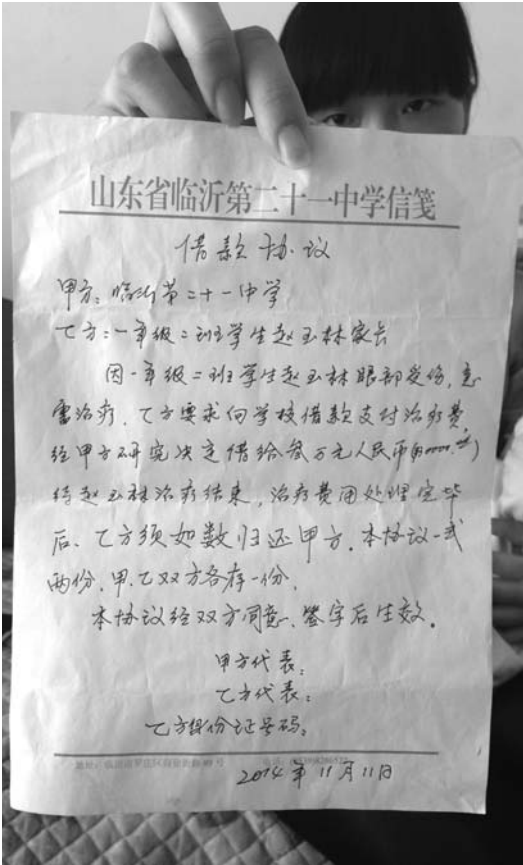 山东省临沂第二十一中学信笺
借款协议
甲方：临沂第二十一中学
乙方：一年级二班学生赵玉林家长
因一年级二班学生赵玉林眼部受伤，急
需治疗，乙方要求向学校借款支付治疗费，
经甲方研究决定借给叁万元人民币
待赵玉林治疗结束，治疗费用处理完毕
后，乙方须如数归还甲方。本协议一式
两份，甲、乙双方各存一份，
本协议经双方同意、签字后生效。
甲方代表：
乙方代表：
乙方身份证号码：
2014年11月11日